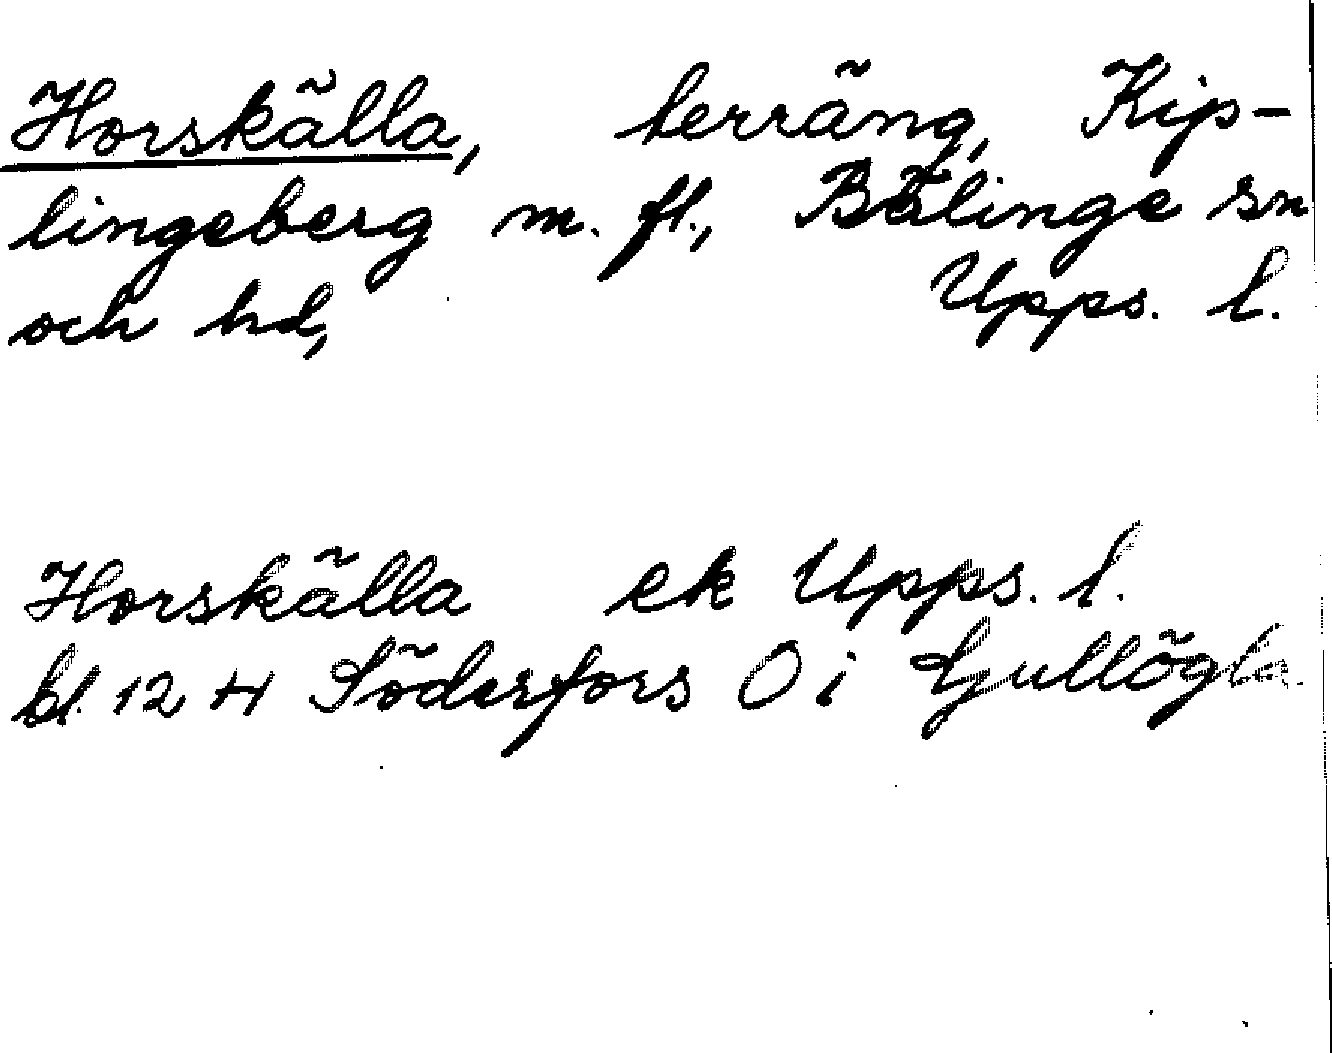 Horskälla, terräng, Kip-
lingeberg m. fl., Bälinge sn
och hd, Upps. l.
Horskälla ek Upps. l.
bl. 12 H Söderfors O i Ljullögla